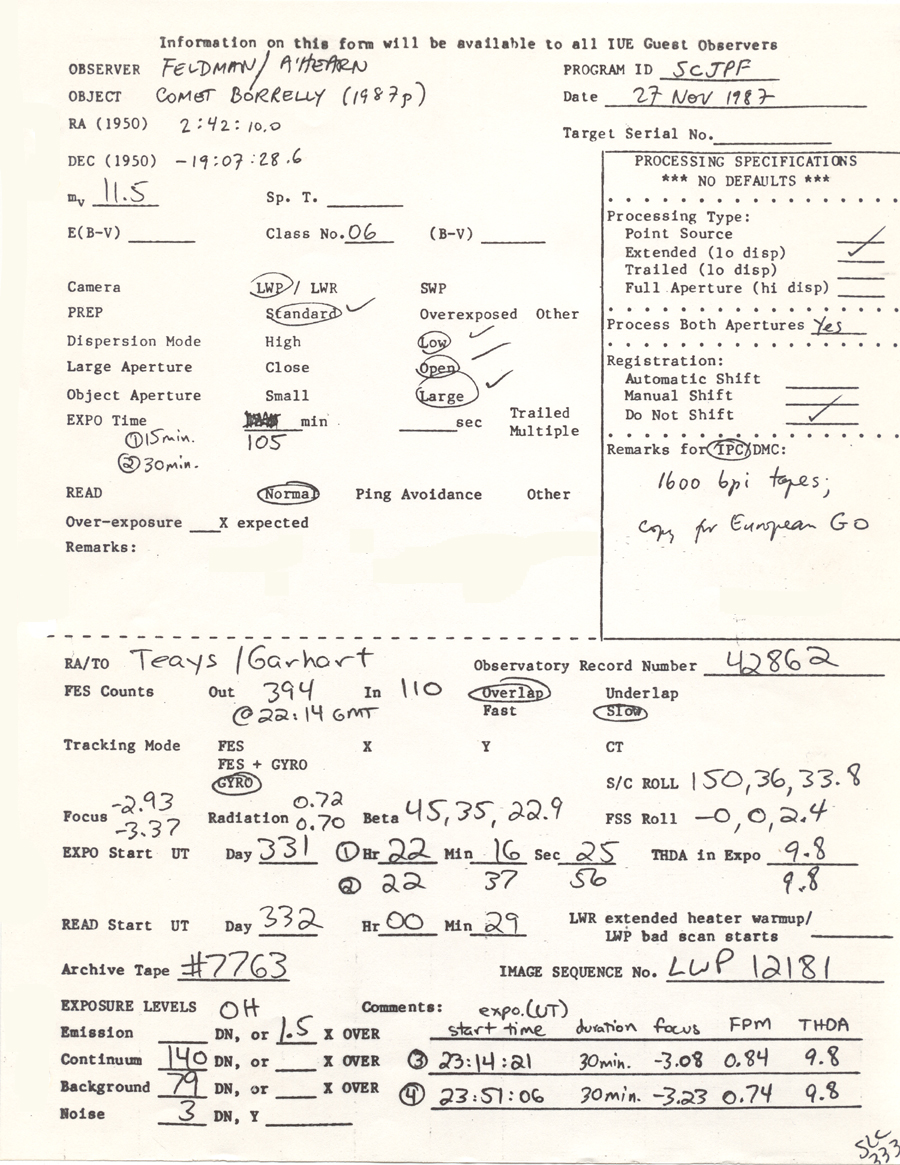 Information on this form will be available to all IUE Guest Observers
OBSERVER FELDMAN/A'HEARN PROGRAM ID SCJPF
OBJECT COMET BORRELLY (1987p) Date 27 NOV 1987
RA (1950) 2:42:10.0
Target Serial No.
DEC (1950) -19:07:28.6
PROCESSING SPECIFICATIONS
*** NO DEFAULTS ***
mv 11.5 Sp. T.
Processing Type:
Point Source
E(B-V) Class No. 06 (B-V)
Extended (lo disp) ✓
Trailed (lo disp)
Full Aperture (hi disp)
Camera LWP / LWR SWP
PREP Standard ✓ Overexposed Other
Process Both Apertures Yes
Dispersion Mode High Low ✓
Large Aperture Close Open
Object Aperture Small Large ✓
Registration:
Automatic Shift
Manual Shift
Do Not Shift ✓
EXPO Time min sec Trailed
Multiple
① 15 min. 105
② 30 min.
Remarks for IPC/DMC:
1600 bpi tapes;
copy for European GO
READ Normal Ping Avoidance Other
Over-exposure X expected
Remarks:
RA/TO Teays / Garhart Observatory Record Number 42862
FES Counts Out 394 In 110 Overlap Underlap
@ 22:14 GMT Fast Slow
Tracking Mode FES X Y CT
FES + GYRO
GYRO
S/C ROLL 150, 36, 33.8
Focus -2.93 Radiation 0.72 Beta 45, 35, 22.9 FSS Roll -0, 0, 2.4
-3.37 0.70
EXPO Start UT Day 331 ① Hr 22 Min 16 Sec 25 THDA in Expo 9.8
② 22 37 56 9.8
READ Start UT Day 332 Hr 00 Min 29 LWR extended heater warmup/
LWP bad scan starts
Archive Tape #7763 IMAGE SEQUENCE No. LWP 12181
EXPOSURE LEVELS OH Comments: expo.(UT)
start time duration focus FPM THDA
Emission DN, or 1.5 X OVER
Continuum 140 DN, or X OVER ③ 23:14:21 30min. -3.08 0.84 9.8
Background 79 DN, or X OVER ④ 23:51:06 30min. -3.23 0.74 9.8
Noise 3 DN, Y
SLC
333